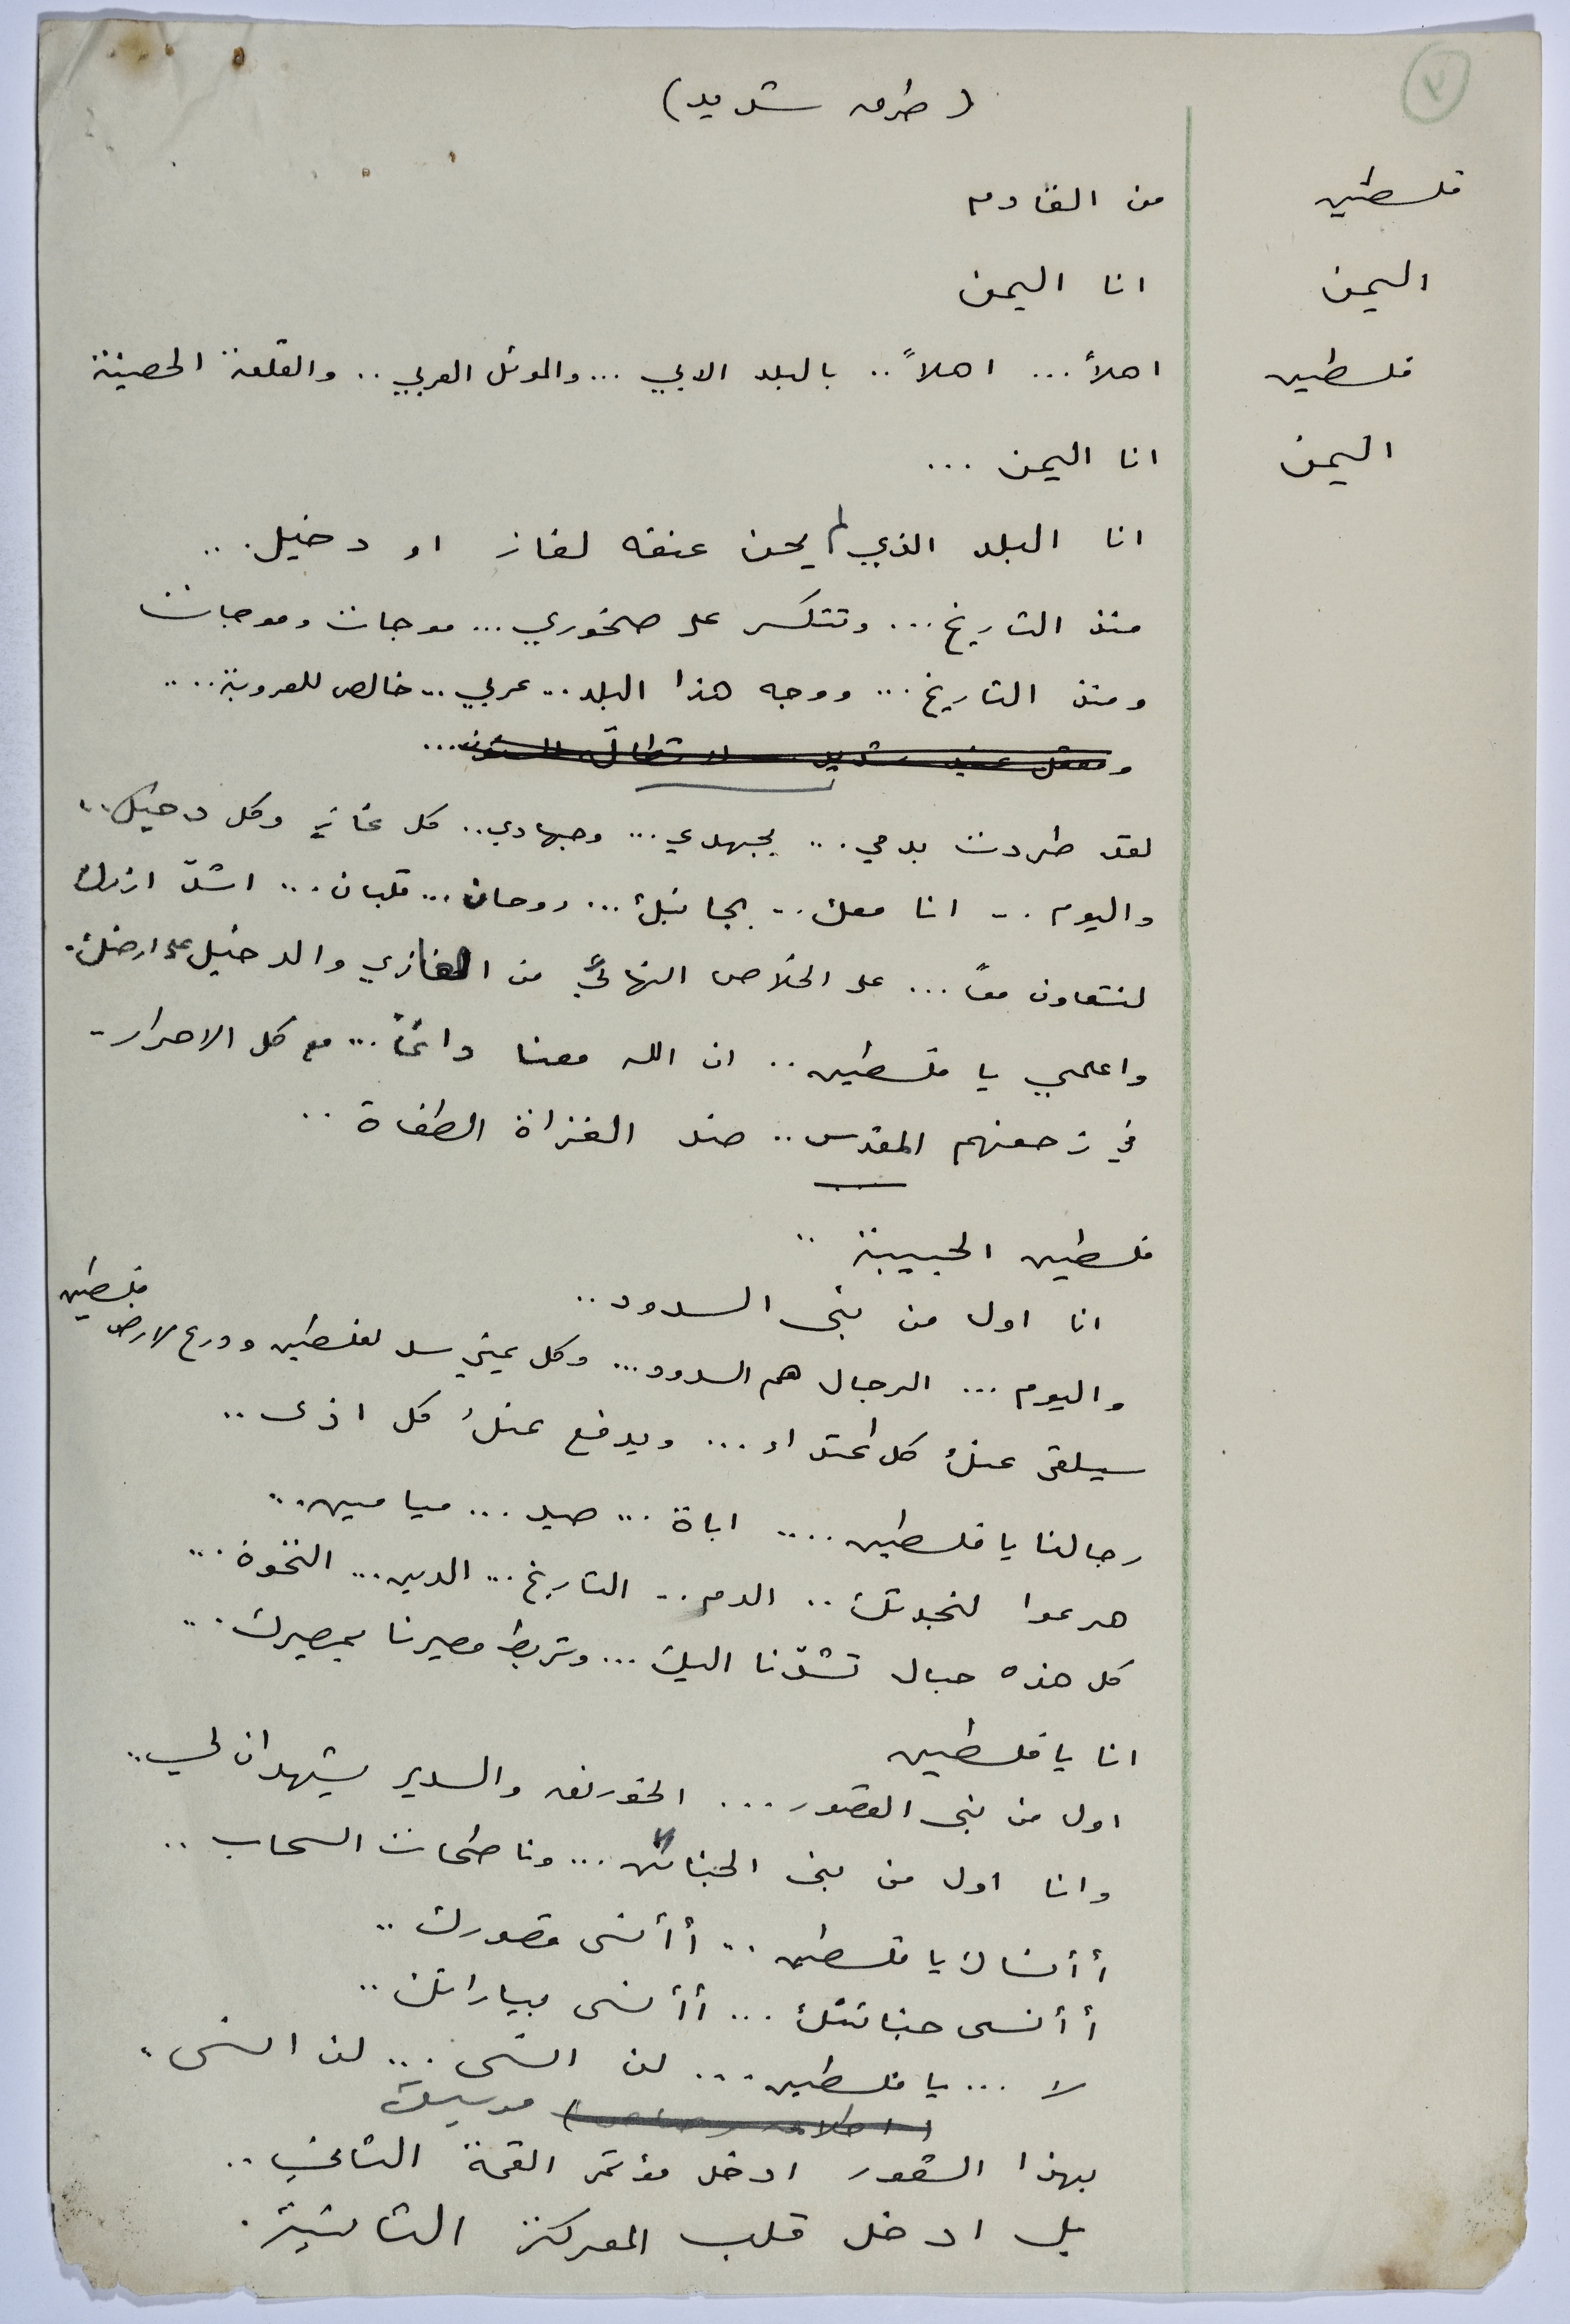 ٧
(طرق شديد)
فلسطين من القادم
اليمن انا اليمن
فلسطين اهلاً... اهلاً.. بالبلد الابي ... والموئل العربي .. والقلعة الحصينة
اليمن انا اليمن ...
انا البلد الذي لم يحن عنقه لغاز او دخيل...
منذ التاريخ... وتتكسر على صخوري... موجات وموجات
ومنذ التاريخ... ووجه هذا البلد... عربي... خالص للعروبة....
ومعقل عنيد شديد
لقد طردت بدمي... بجهدي... وجهادي.. كل غاز وكل دخيل..
واليوم .. انا معك.. بجانبك... روحان... قلبان... اشد ازرك
لنتعاون معاً... على الخلاص النهائي من الغازي والدخيل على ارضك.
واعلمي يا فلسطين.. ان الله معنا دائماً... مع كل الاحرار..
في زحفهم المقدس.. ضد الغزاة الطغاة..
فلسطين الحبيبة..
انا اول من بنى السدود..
واليوم ... الرجال هم السدود... وكل يمني سد لفلسطين ودرع لارض فلسطين
سيلقى عنك كل اعتداء ... ويدفع عنك كل اذى..
رجالنا يا فلسطين.... اباة ... صيد ... ميامين..
هرعوا لنجدتك.. الدم.. التاريخ... الدين... النخوة...
كل هذه حبال تشدّنا اليك... وتربط مصيرنا بمصيرك...
انا يا فلسطين
اول من بنى القصور... الخورنق والسدير يشهدان لي..
وانا اول من بنى الجنائن... وناطحات السحاب..
أأنساك يا فلسطين... أأنسى قصورك..
أأنسى جنائنك... أأنسى بياراتك..
لا ... يا فلسطين... لن انسى... لن انسى.
(اطلاق رصاص) موسيقى
بهذا الشعور ادخل مؤتمر القمة الثاني..
بل ادخل قلب المعركة الثانية.